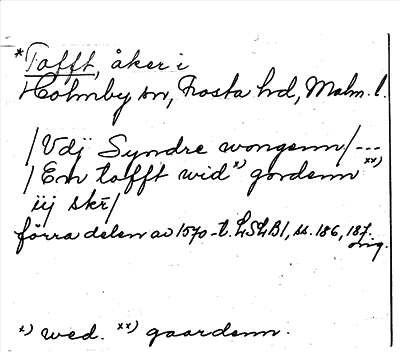 *Tofft, åker i
Holmby sn, Frosta hd, Malm. l.
/Vdj Syndre wongenn/---
/En tofft wid x) gordenn xx)
iij skr̄/
förra delen av 1570-t. LSLB1, ss. 186, 187.
orig.
x) wed. xx) gaardenn.